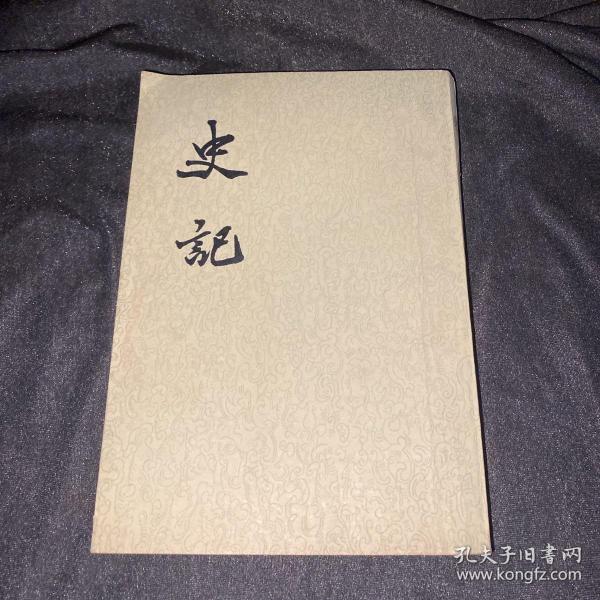 史記
孔夫子旧書网
www.kongfz.com